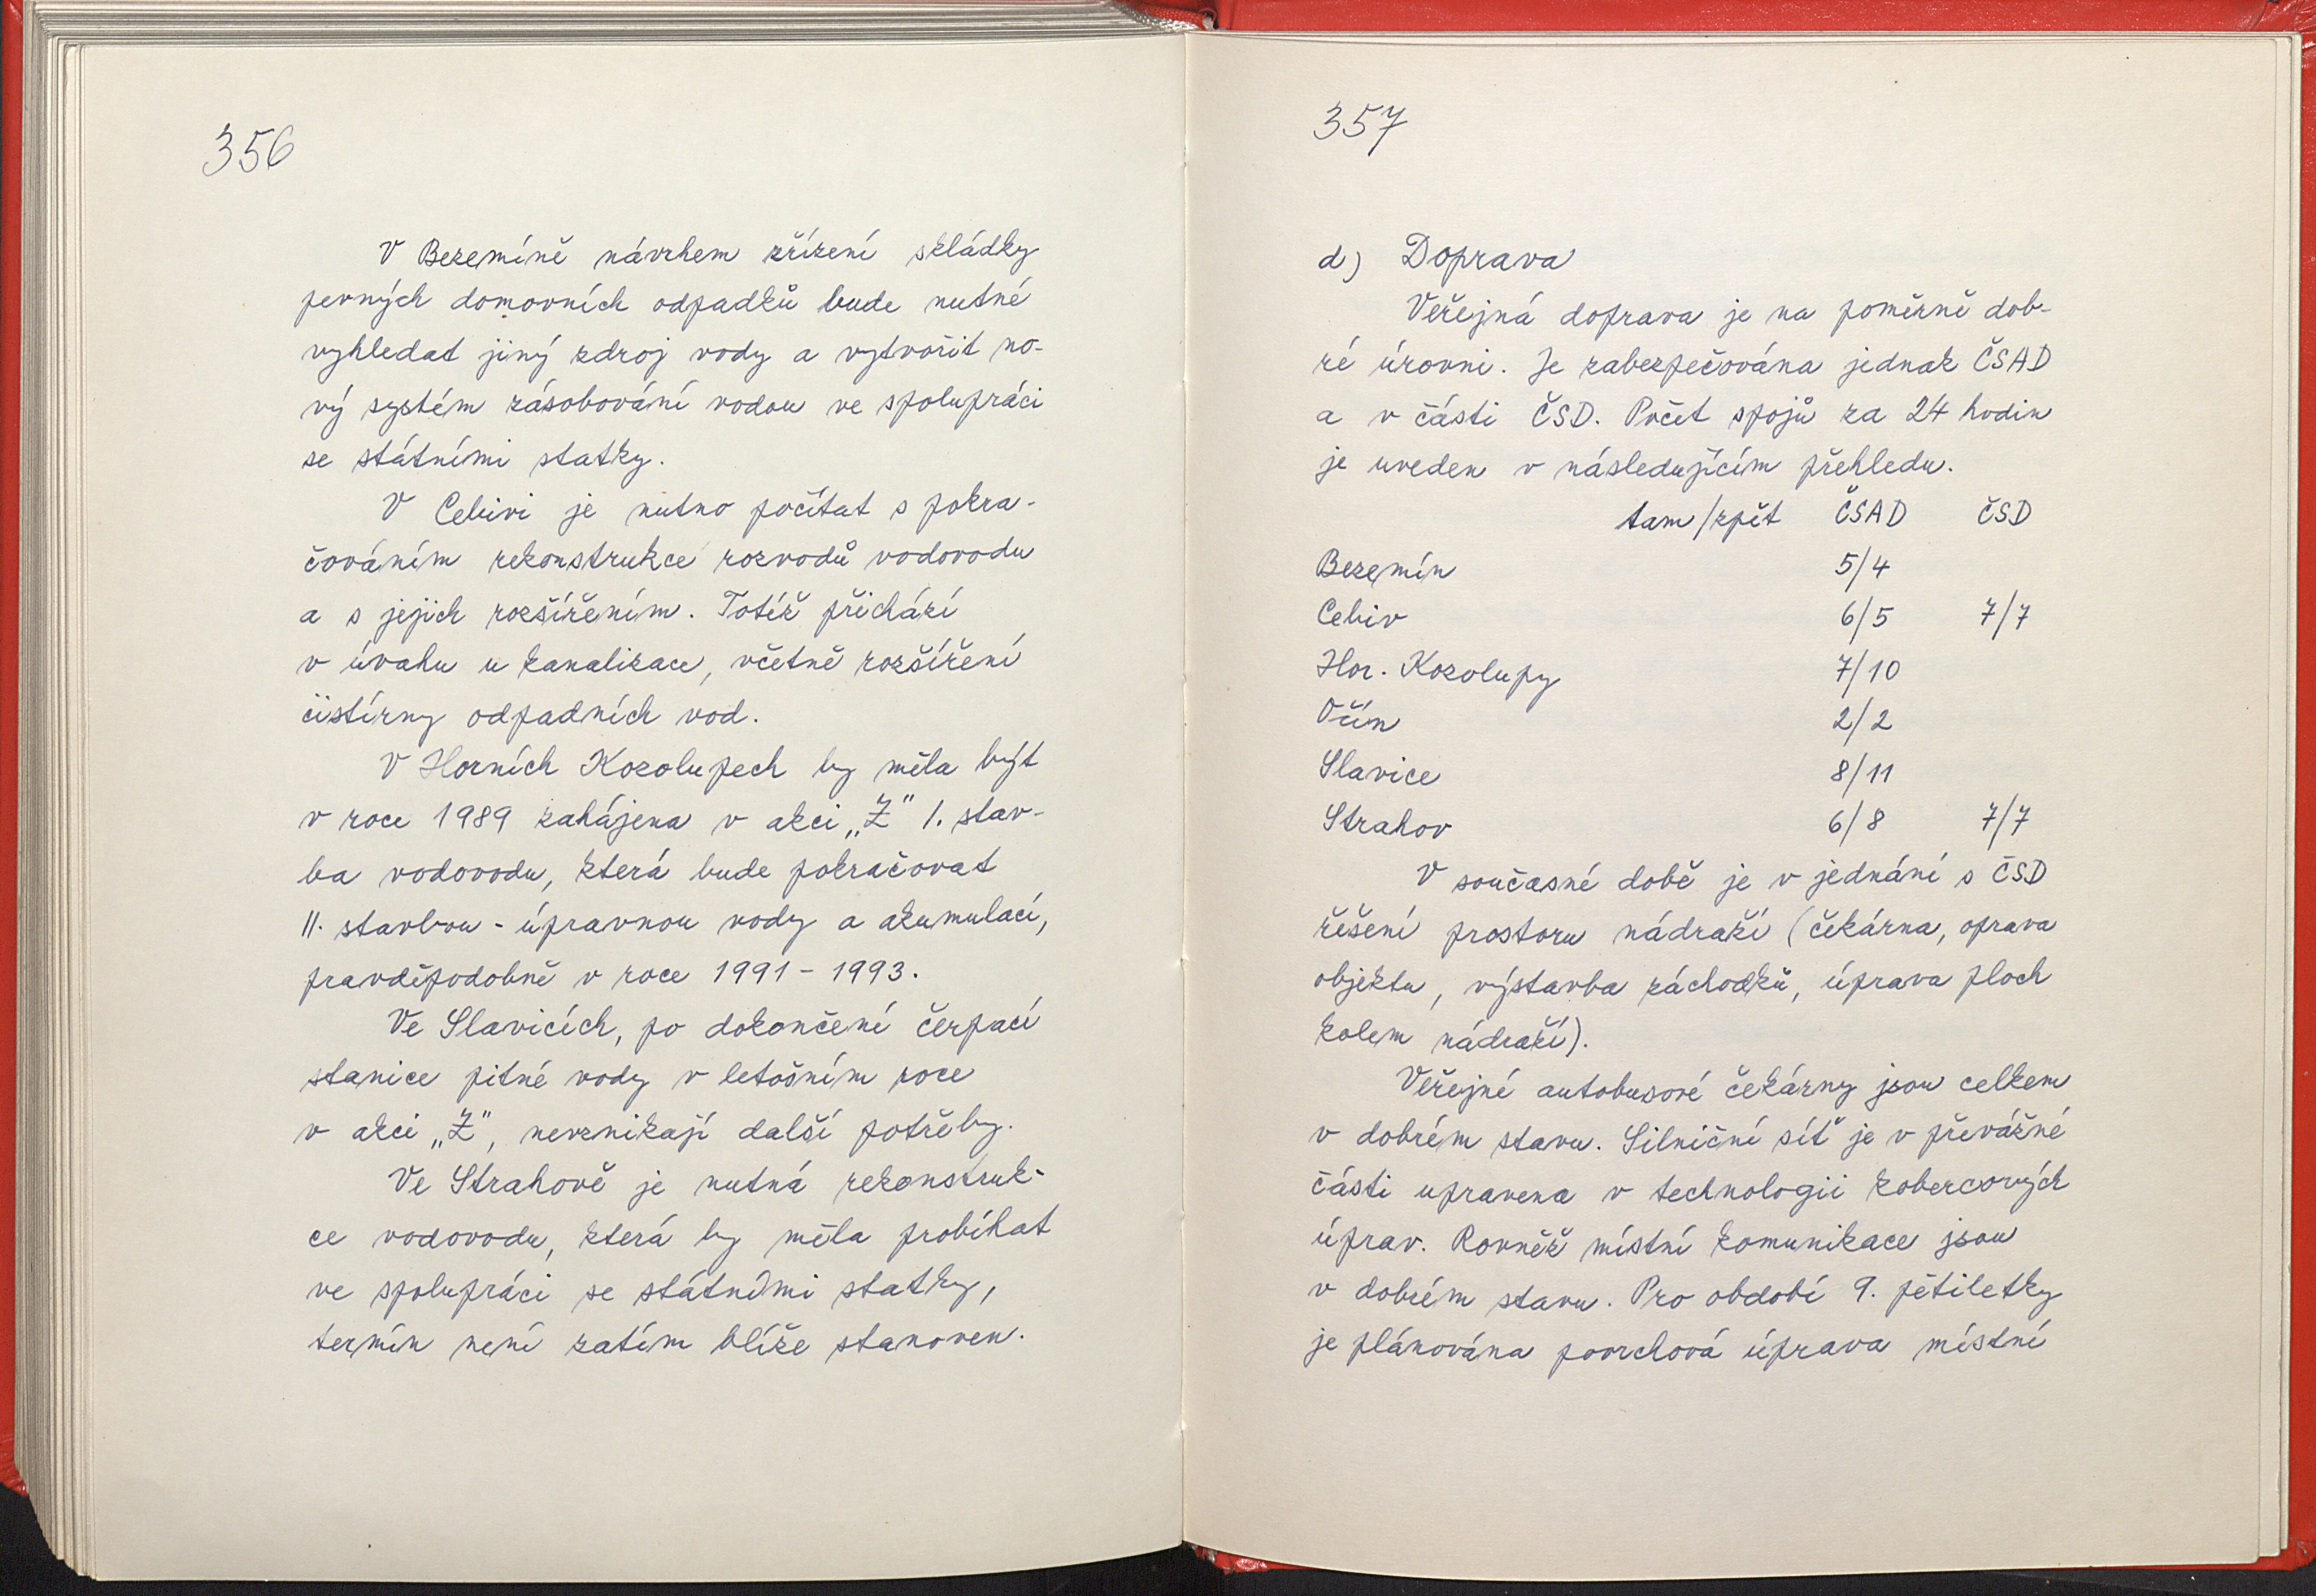 356
V Bezemíně návrhem zřízení skládky
pevných domovních odpadků bude nutné
vyhledat jiný zdroj vody a vytvořit no-
vý systém zásobování vodou ve spolupráci
se státními statky.
V Cebivi je nutno počítat s pokra-
čováním rekonstrukce rozvodů vodovodu
a s jejich rozšířením. Totéž přichází
v úvahu u kanalizace, včetně rozšíření
čistírny odpadních vod.
V Horních Kozolupech by měla být
v roce 1989 zahájena v akci „Z" I. stav-
ba vodovodu, která bude pokračovat
II. stavbou - úpravnou vody a akumulací,
pravděpodobně v roce 1991 - 1993.
Ve Slavicích, po dokončení čerpací
stanice pitné vody v letošním roce
v akci „Z", nevznikají další potřeby.
Ve Strahově je nutná rekonstruk-
ce vodovodu, která by měla probíhat
ve spolupráci se státními statky,
termín není zatím blíže stanoven.
357
d) Doprava
Veřejná doprava je na poměrně dob-
ré úrovni. Je zabezpečována jednak ČSAD
a v části ČSD. Počet spojů za 24 hodin
je uveden v následujícím přehledu.
tam/zpět ČSAD ČSD
Bezemín 5/4
Cebiv 6/5 7/7
Hor. Kozolupy 7/10
Očín 2/2
Slavice 8/11
Strahov 6/8 7/7
V současné době je v jednání s ČSD
řešení prostoru nádraží (čekárna, oprava
objektu, výstavba záchodků, úprava ploch
kolem nádraží).
Veřejné autobusové čekárny jsou celkem
v dobrém stavu. Silniční síť je v převážné
části upravena v technologii kobercových
úprav. Rovněž místní komunikace jsou
v dobrém stavu. Pro období 9. pětiletky
je plánována povrchová úprava místní